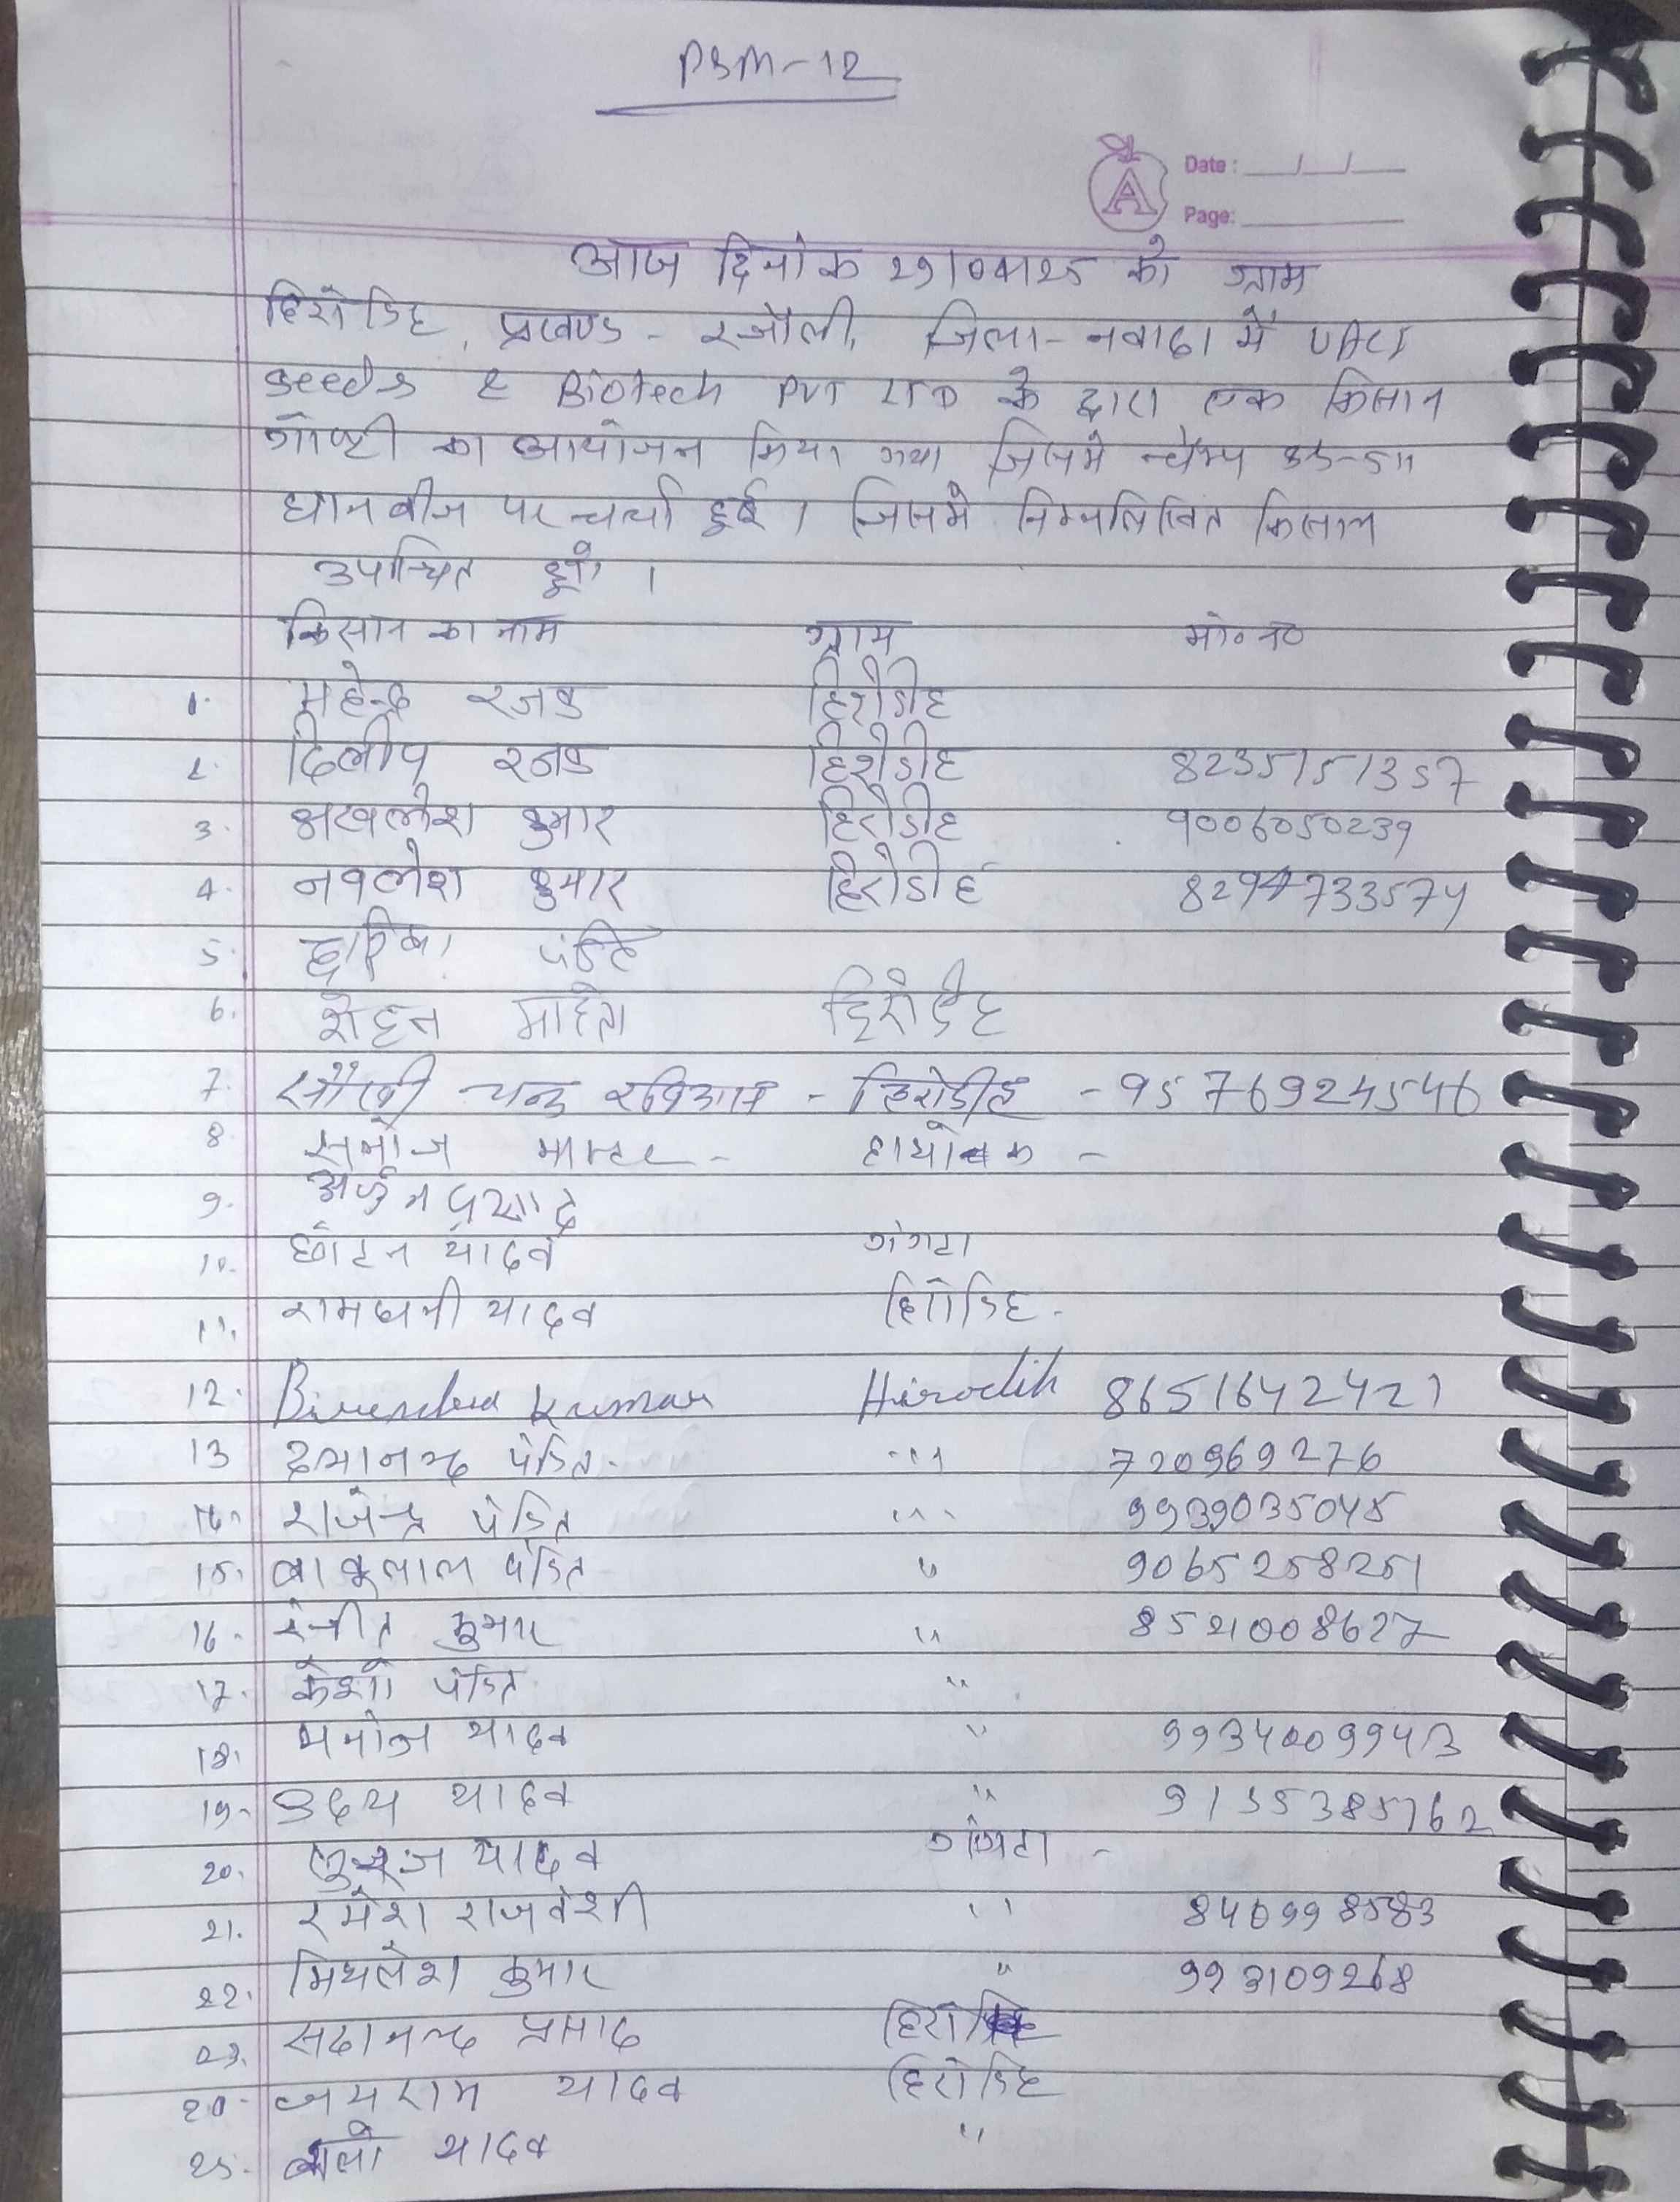 PSM-12
A
Date : / /
Page:
आज दिनांक 29/04/25 को ग्राम
हिरोडिह, प्रखण्ड - रजौली, जिला - नवादा में
Seeds & Biotech PVT LTD के द्वारा एक किसान
गोष्टी का आयोजन किया गया जिसमे
धान बीज पर चर्चा हुई। जिसमे निम्नलिखित किसान
उपस्थित हुए।
किसान का नाम ग्राम मो॰ न॰
1. महेन्द्र रजक हिरोडीह
2. दिलीप रजक हिरोडीह 8235151357
3. अखलेश कुमार हिरोडीह 9006050239
4. नवलेश कुमार हिरोडीह 8294733574
5. द्वारिका पंडित
6. रोहन माहतो हिरोडीह
7. चन्द्र रविदास - हिरोडीह - 9576924546
8 मनोज -
9. अर्जुन प्रसाद
10. छोटन यादव गंगटा
11. रामधनी यादव हिरोडिह -
12. Birendra Kumar Hirodih 8651642421
13 दयानन्द पंडित - ,,, 720969276
14. राजेन्द्र पंडित ,,, 9939035045
15. बाबुलाल पंडित ,, 9065258251
16. रंजीत कुमार ,, 8521008627
17. केशो पंडित ,,
18. मनोज यादव ,, 9934009943
19. उदय यादव ,, 9155385762
20. सुरज यादव गंगटा -
21. रमेश राजवंशी ,, 840998583
22. मिथलेश कुमार ,, 993109268
23. सदानन्द प्रसाद
24. जयराम यादव हिरोडिह
25. यादव ,,